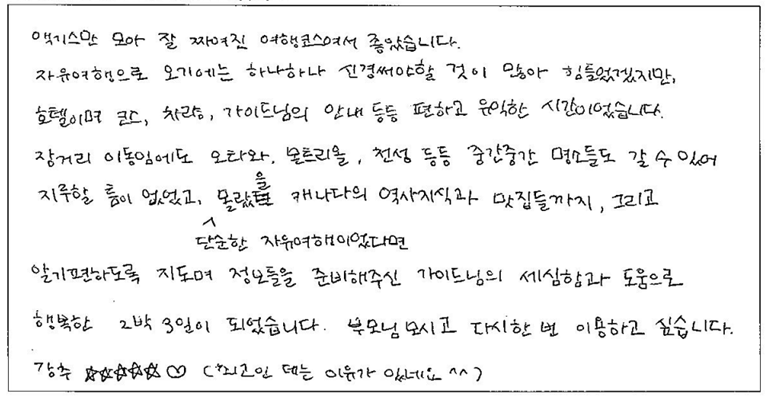 액기스만 모아 잘 짜여진 여행코스여서 좋았습니다.
자유여행으로 오기에는 하나하나 신경써야할 것이 많아 힘들었겠지만,
호텔이며 코스, 차량, 가이드님의 안내 등등 편하고 유익한 시간이었습니다.
장거리 이동임에도 오타와, 몬트리올, 천섬 등등 중간중간 명소들도 갈 수 있어
지루할 틈이 없었고, 몰랐을 캐나다의 역사지식과 맛집들까지, 그리고
단순한 자유여행이었다면
알기편하도록 지도며 정보들을 준비해주신 가이드님의 세심함과 도움으로
행복한 2박 3일이 되었습니다. 부모님모시고 다시한 번 이용하고 싶습니다.
강추 ☆☆☆☆☆ ♡ (최고인 데는 이유가 있네요 ^^)